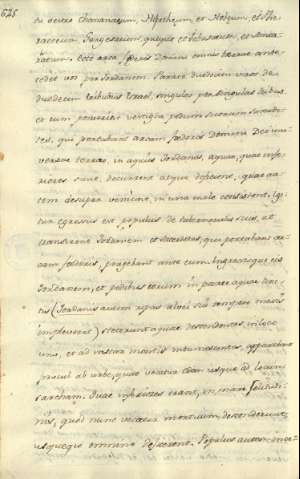 625
du vestro Chananaeum, Hethaeum, et Hevaeum, et Phe-
raezeum, Gergesaeum, quoque et Jebusaeum, et Amor-
rhaeum. Ecce arca foederis Domini omnis terrae ante-
cedet vos per Jordanem. Parate duodecim viros de
duodecim tribubus Israel, singulos per singulas tribus.
et cum posuerint vestigia pedum suorum sacerdo-
tes, qui portabunt arcam foederis Domini Dei uni-
versae terrae, in aquis Jordanis, aquae, quae infe-
riores sunt, decurrent atque deficient, quae au-
tem desuper veniunt, in una mole consistent. Igi-
tur egressus est populus de tabernaculis suis, ut
transiret Jordanem et sacerdotes, qui portabant ar-
cam foederis, pergebant ante eum. Ingressisque eis
Jordanem, et pedibus eorum in parte aquae tinc-
tis (Jordanis autem ripas alvei sui tempore messis
impleverat) steterunt aquae descendentes in loco
uno, et ad instar montis intumescentes, apparebant
procul ab urbe, quae vocatur Adam usque ad locum
Sarthan. quae inferiores erant, in mare solitudi-
nis, quod nunc vocatur mortuum, descenderunt,
usquequo omnino deficerent. Populus autem ince-